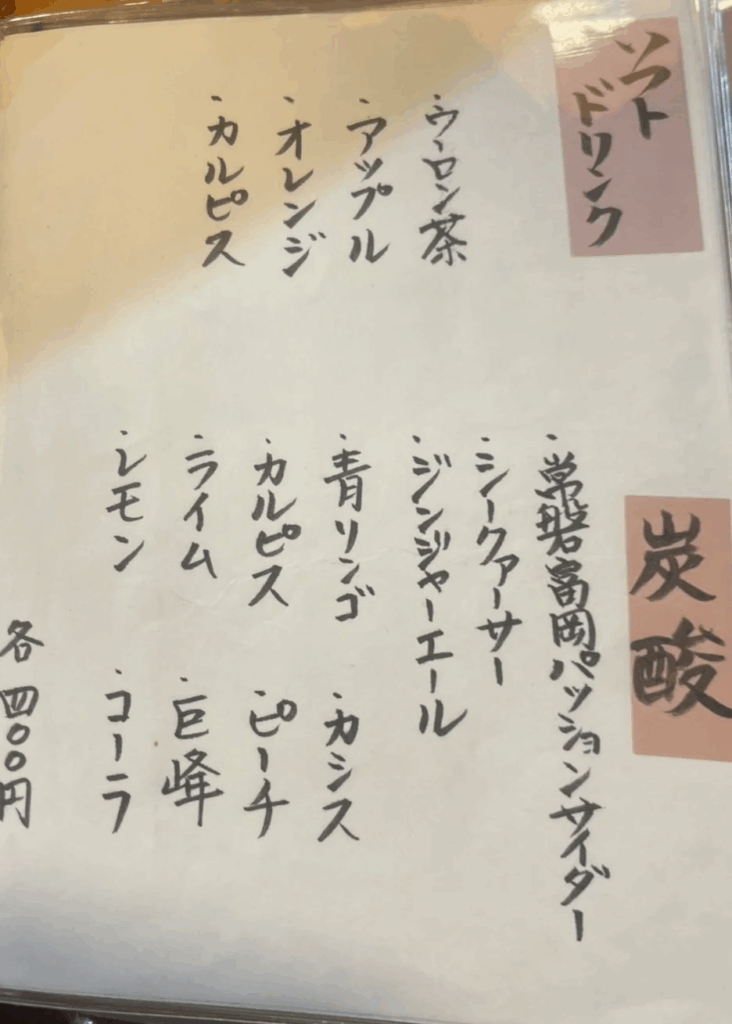 ソフト
ドリンク
・ウーロン茶
・アップル
・オレンジ
・カルピス
炭酸
・常磐富岡パッションサイダー
・シークァーサー
・ジンジャーエール
・青リンゴ
・カシス
・カルピス
・ピーチ
・ライム
・巨峰
・レモン
・コーラ
各四〇〇円